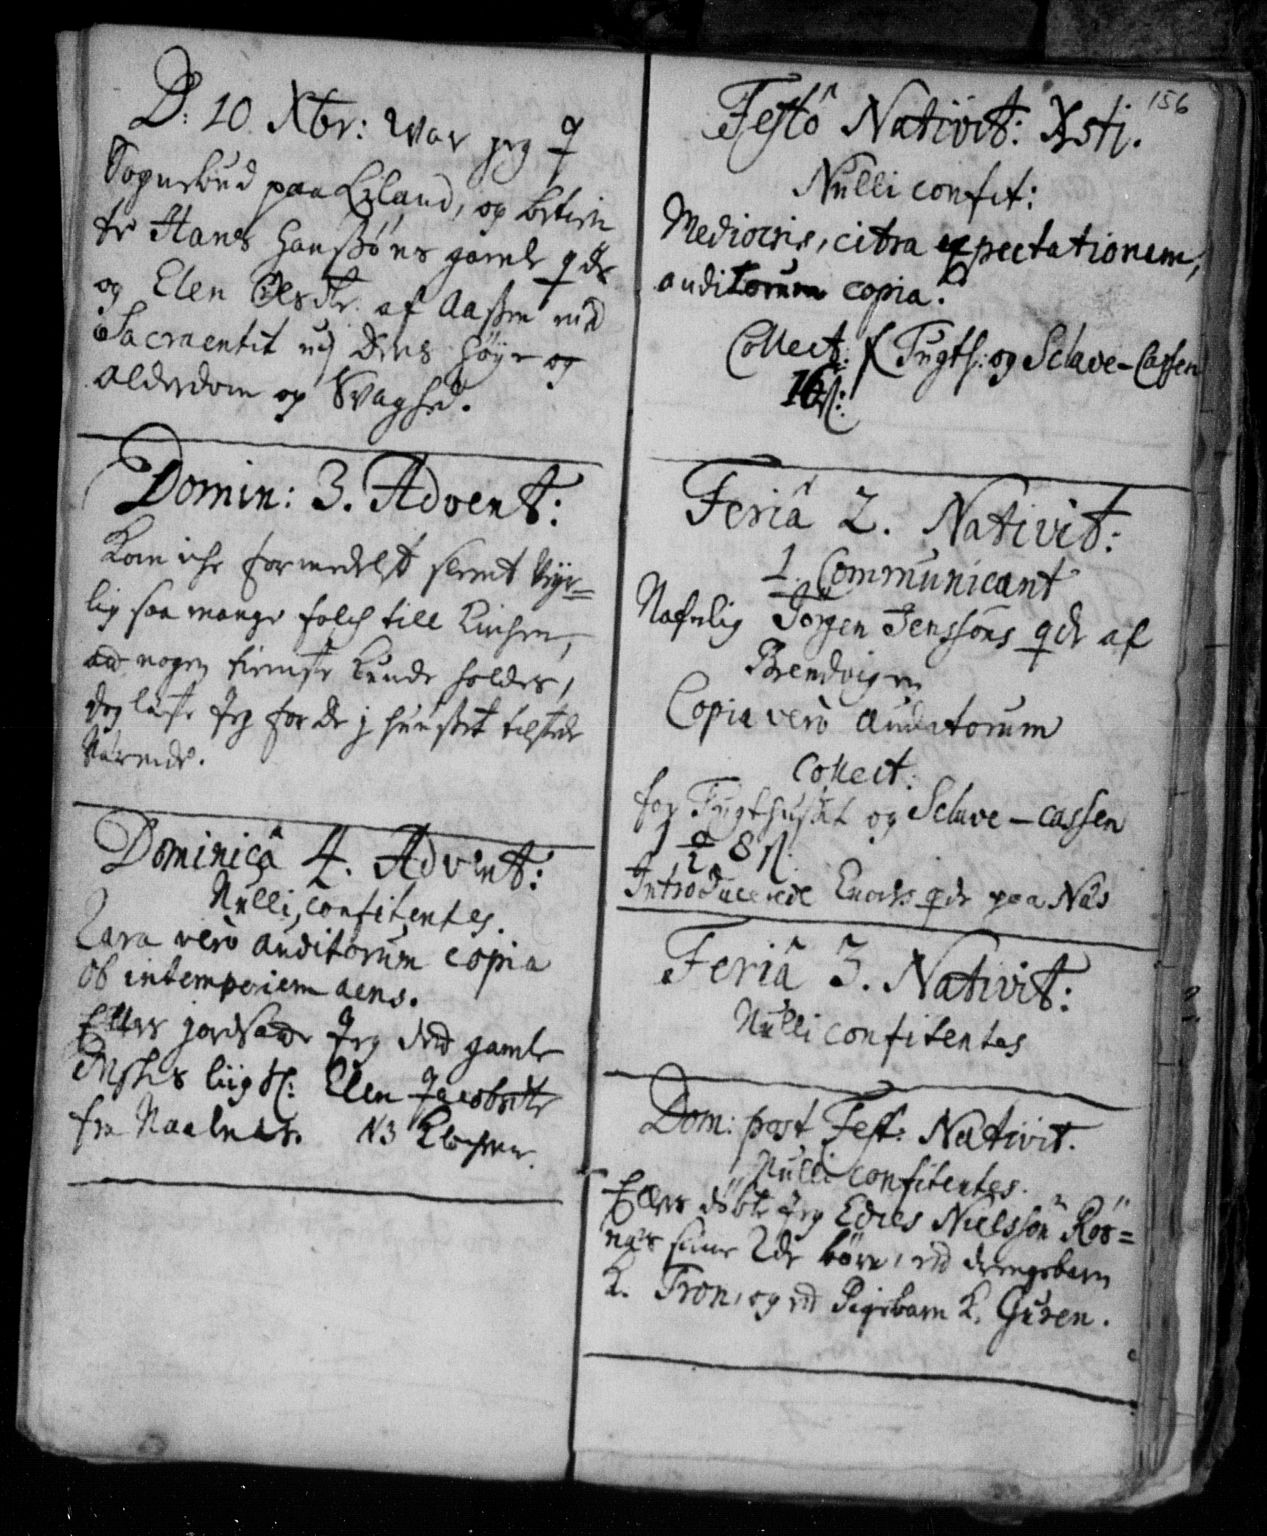 D: 10 Xbr: war jeg j
Sognebud paa Erland, og betien
te Hans Hanssøns gamle qde
og Elen Olsdtr. af Aassen med
Sacramentet udj deris høye
alderdom og Svaghed.
Domin: 3. Advent:
Kom iche formedelst slemt Veyr=
lig saa mange folch till Kirchen,
ad nogen tieniste kunde holdes,
dog læste Jeg for de j huuset tilstede
Værende.
Dominicâ 4. Advent:
Nulli confitentes.
Rara verò auditorum copia
ob intemperiem aeris.
Ellers jordsatte Jeg det gamle
liig Sl: Elen Jacobsdtr
fra Naalnes. N3 Klochen.
156
Festô Nativit: Xsti.
Nulli confit:
Mediocris, citra expectationem,
auditorum copia.
Collect: t Tugth: og Sclave-Cassen
16 ſl:
Feriâ 2. Nativit:
1. Communicant
Nafnlig Jörgen Jenssöns qde af
Brendvigen
Copia verò auditorum
Collect:
for Tugthuset og Sclave-cassen
8 ſl.
Introducerede Enochs qde paa Näs
Feriâ 3. Nativit:
Nulli confitentes
Dom: post Fest: Nativit.
Nulli confitentes.
Ellers döbte Jeg Edies Nielssön Rös=
näs siine 2de börn, et drengebarn
k. Tron, og et Pigebarn k. Guren.